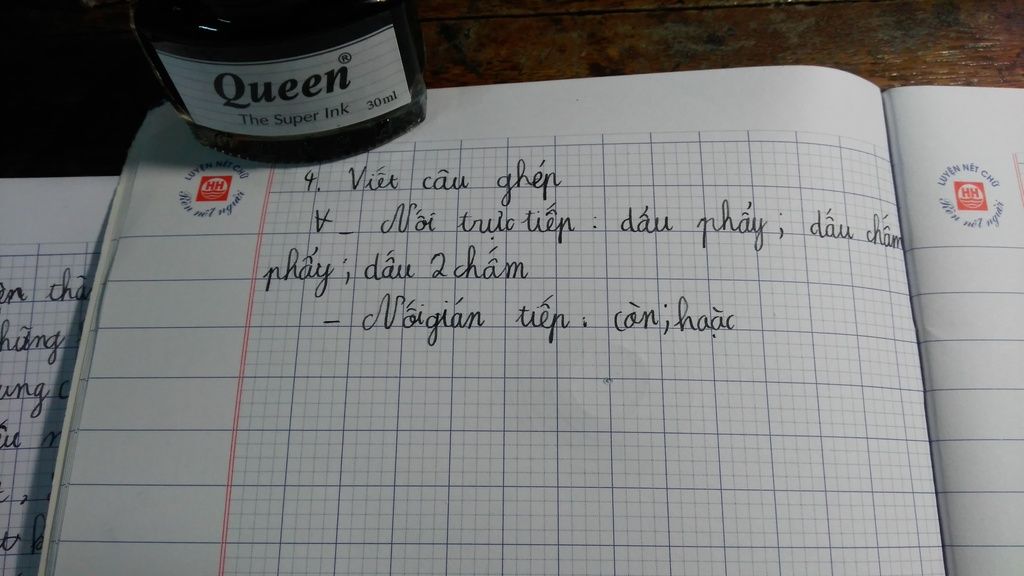 Queen®
The Super Ink 30ml
LUYỆN NÉT CHỮ
HH
Rèn nết người
4. Viết câu ghép
- Nối trực tiếp : dấu phẩy ; dấu chấm
phẩy ; dấu 2 chấm
- Nối gián tiếp : còn ; hoặc
LUYỆN NÉT CHỮ
HH
Rèn nết người